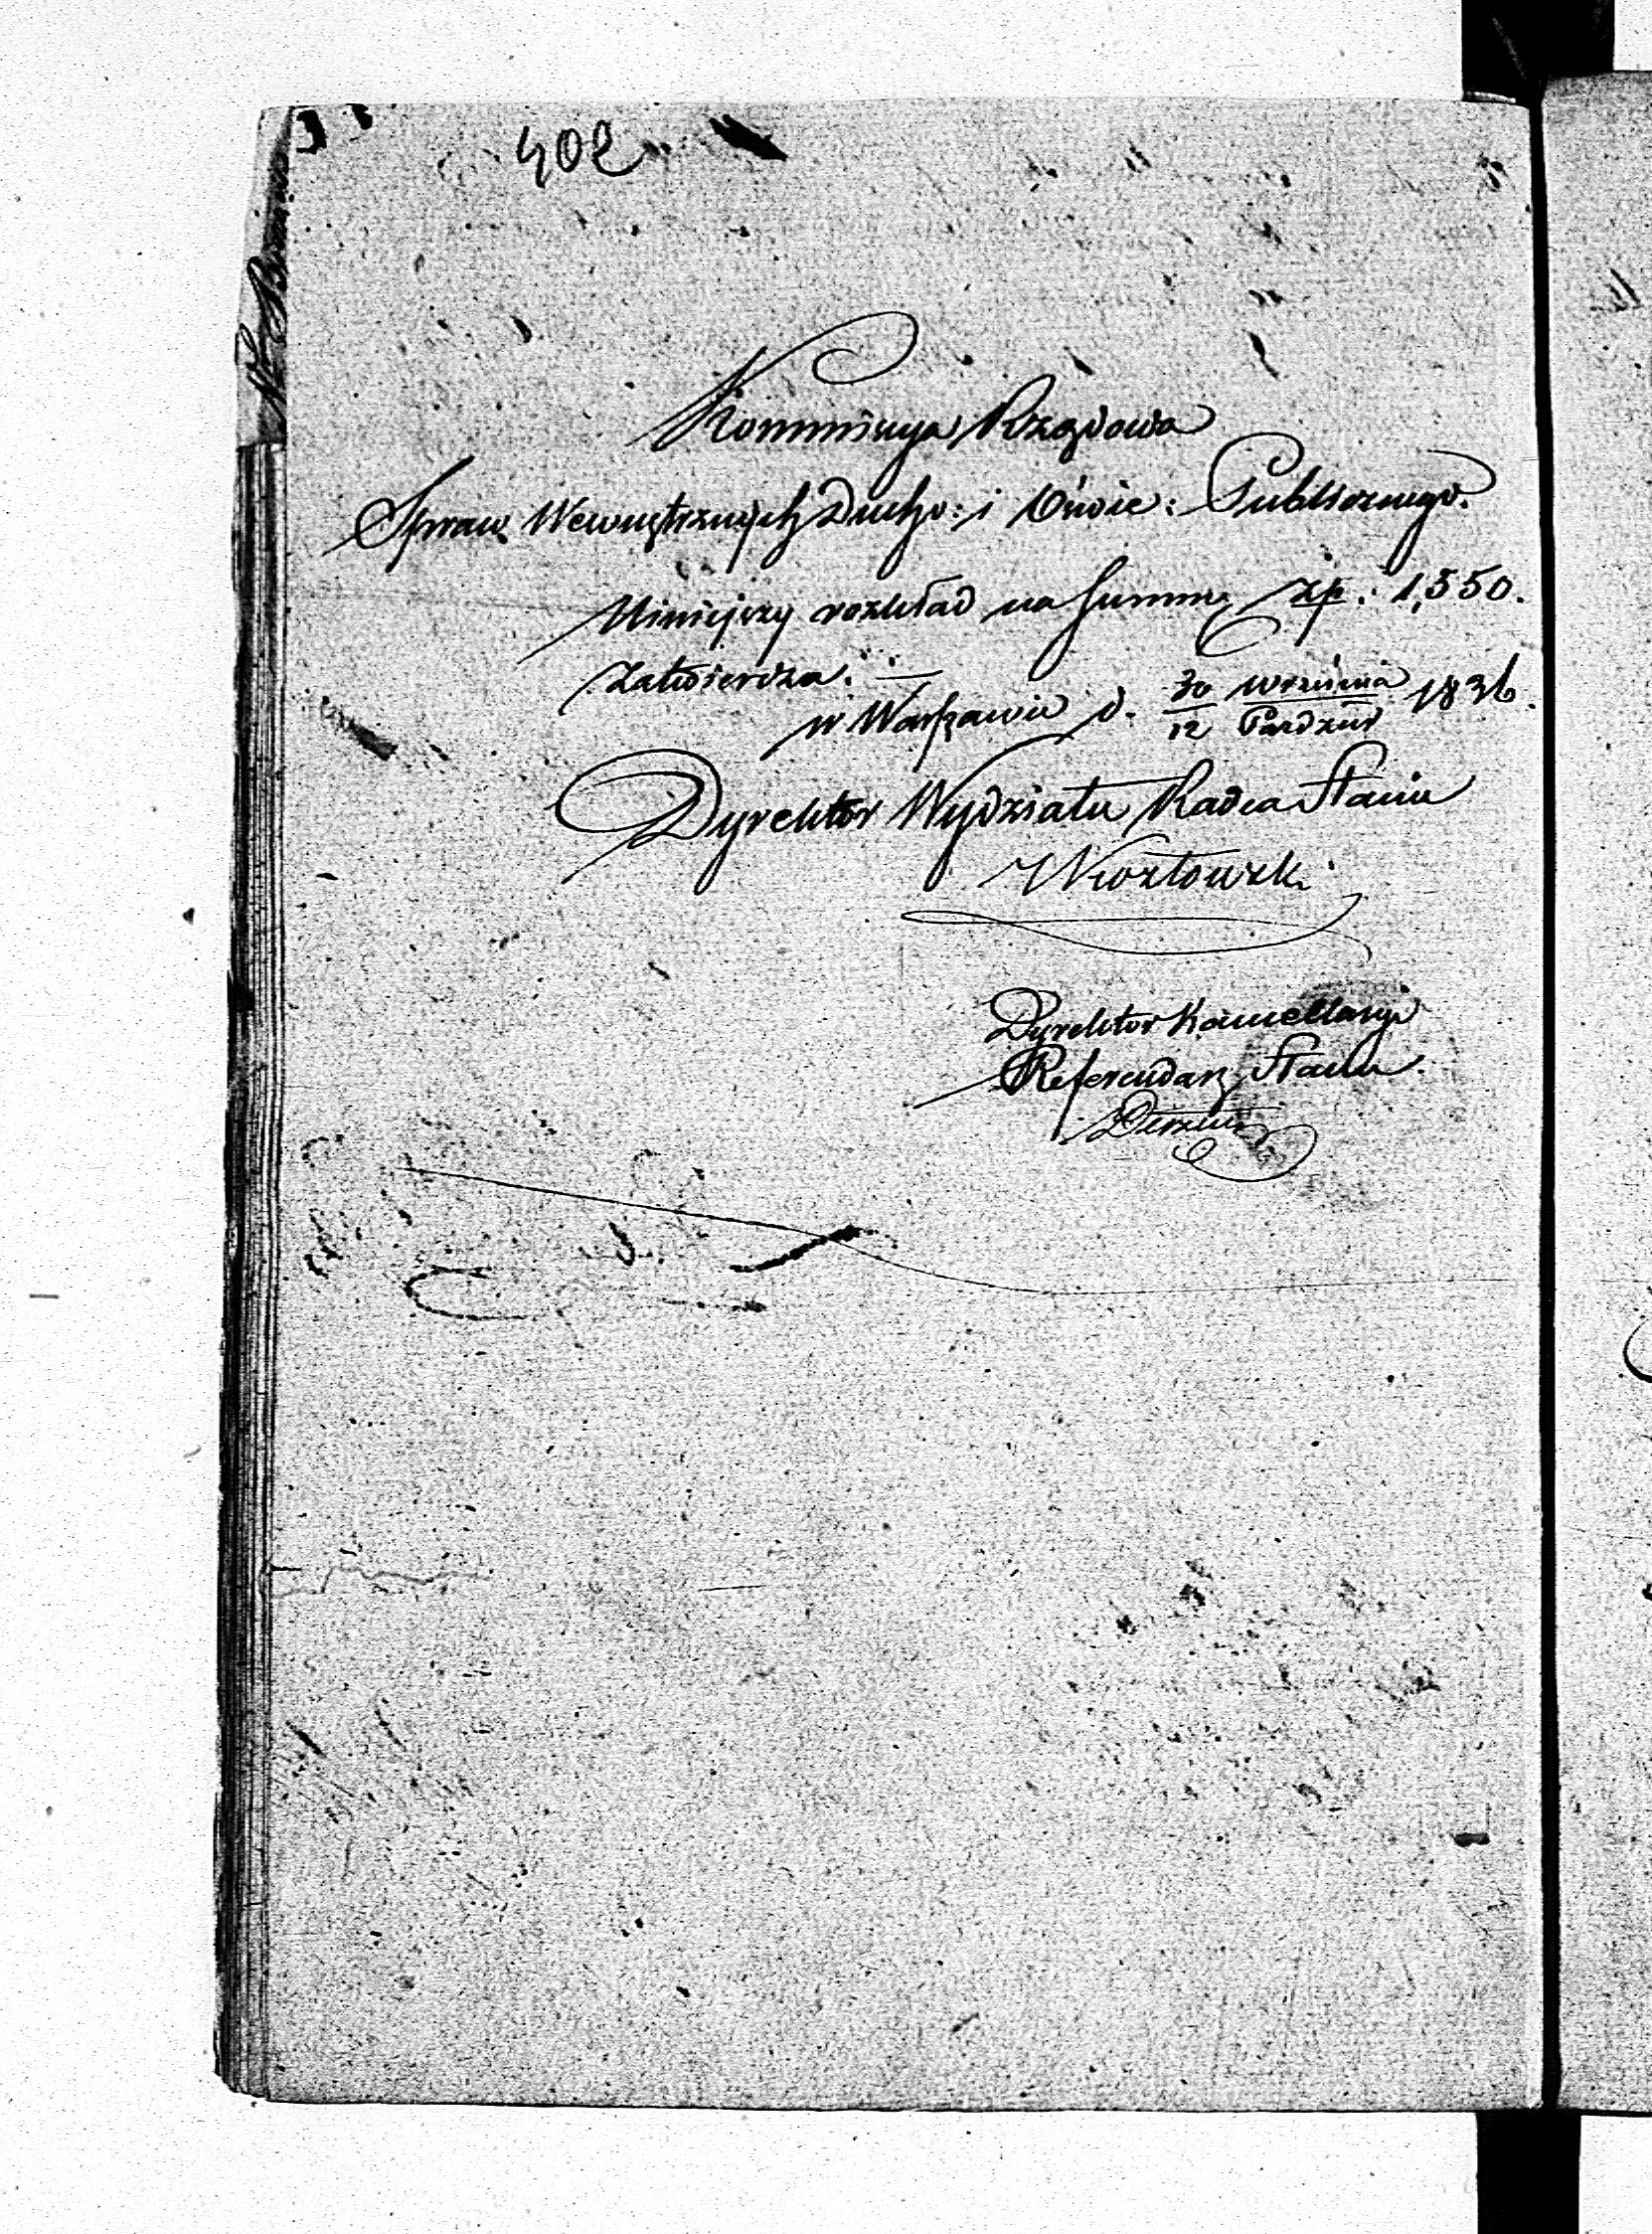 402
Kommissya Rządowa
Spraw Wewnętrznych Ducho: i Oświe: Publicznego.
Niniejszy rozkład na summę zp: 1,550.
zatwierdza. —
w Warszawie d. 30/12 Września/Paździer 1836.
Dyrektor Wydziału Radca Stanu
Dyrektor Kancellaryi
Referendarz Stanu.